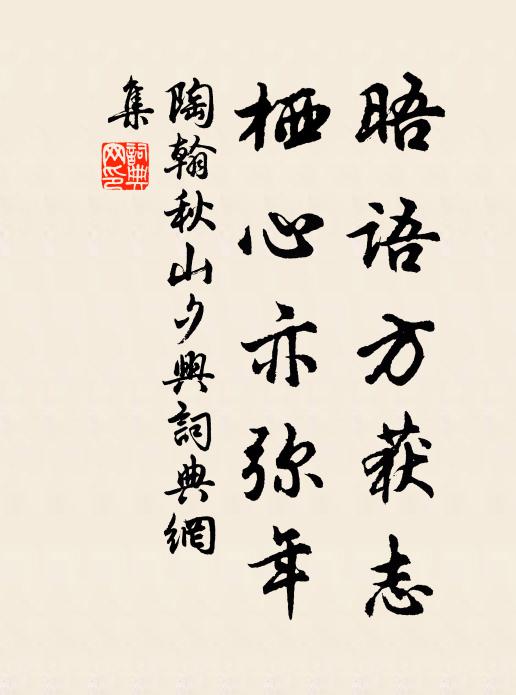 晤語方获志
栖心亦弥年
陶翰秋山夕興詞典網
集
詞典網印